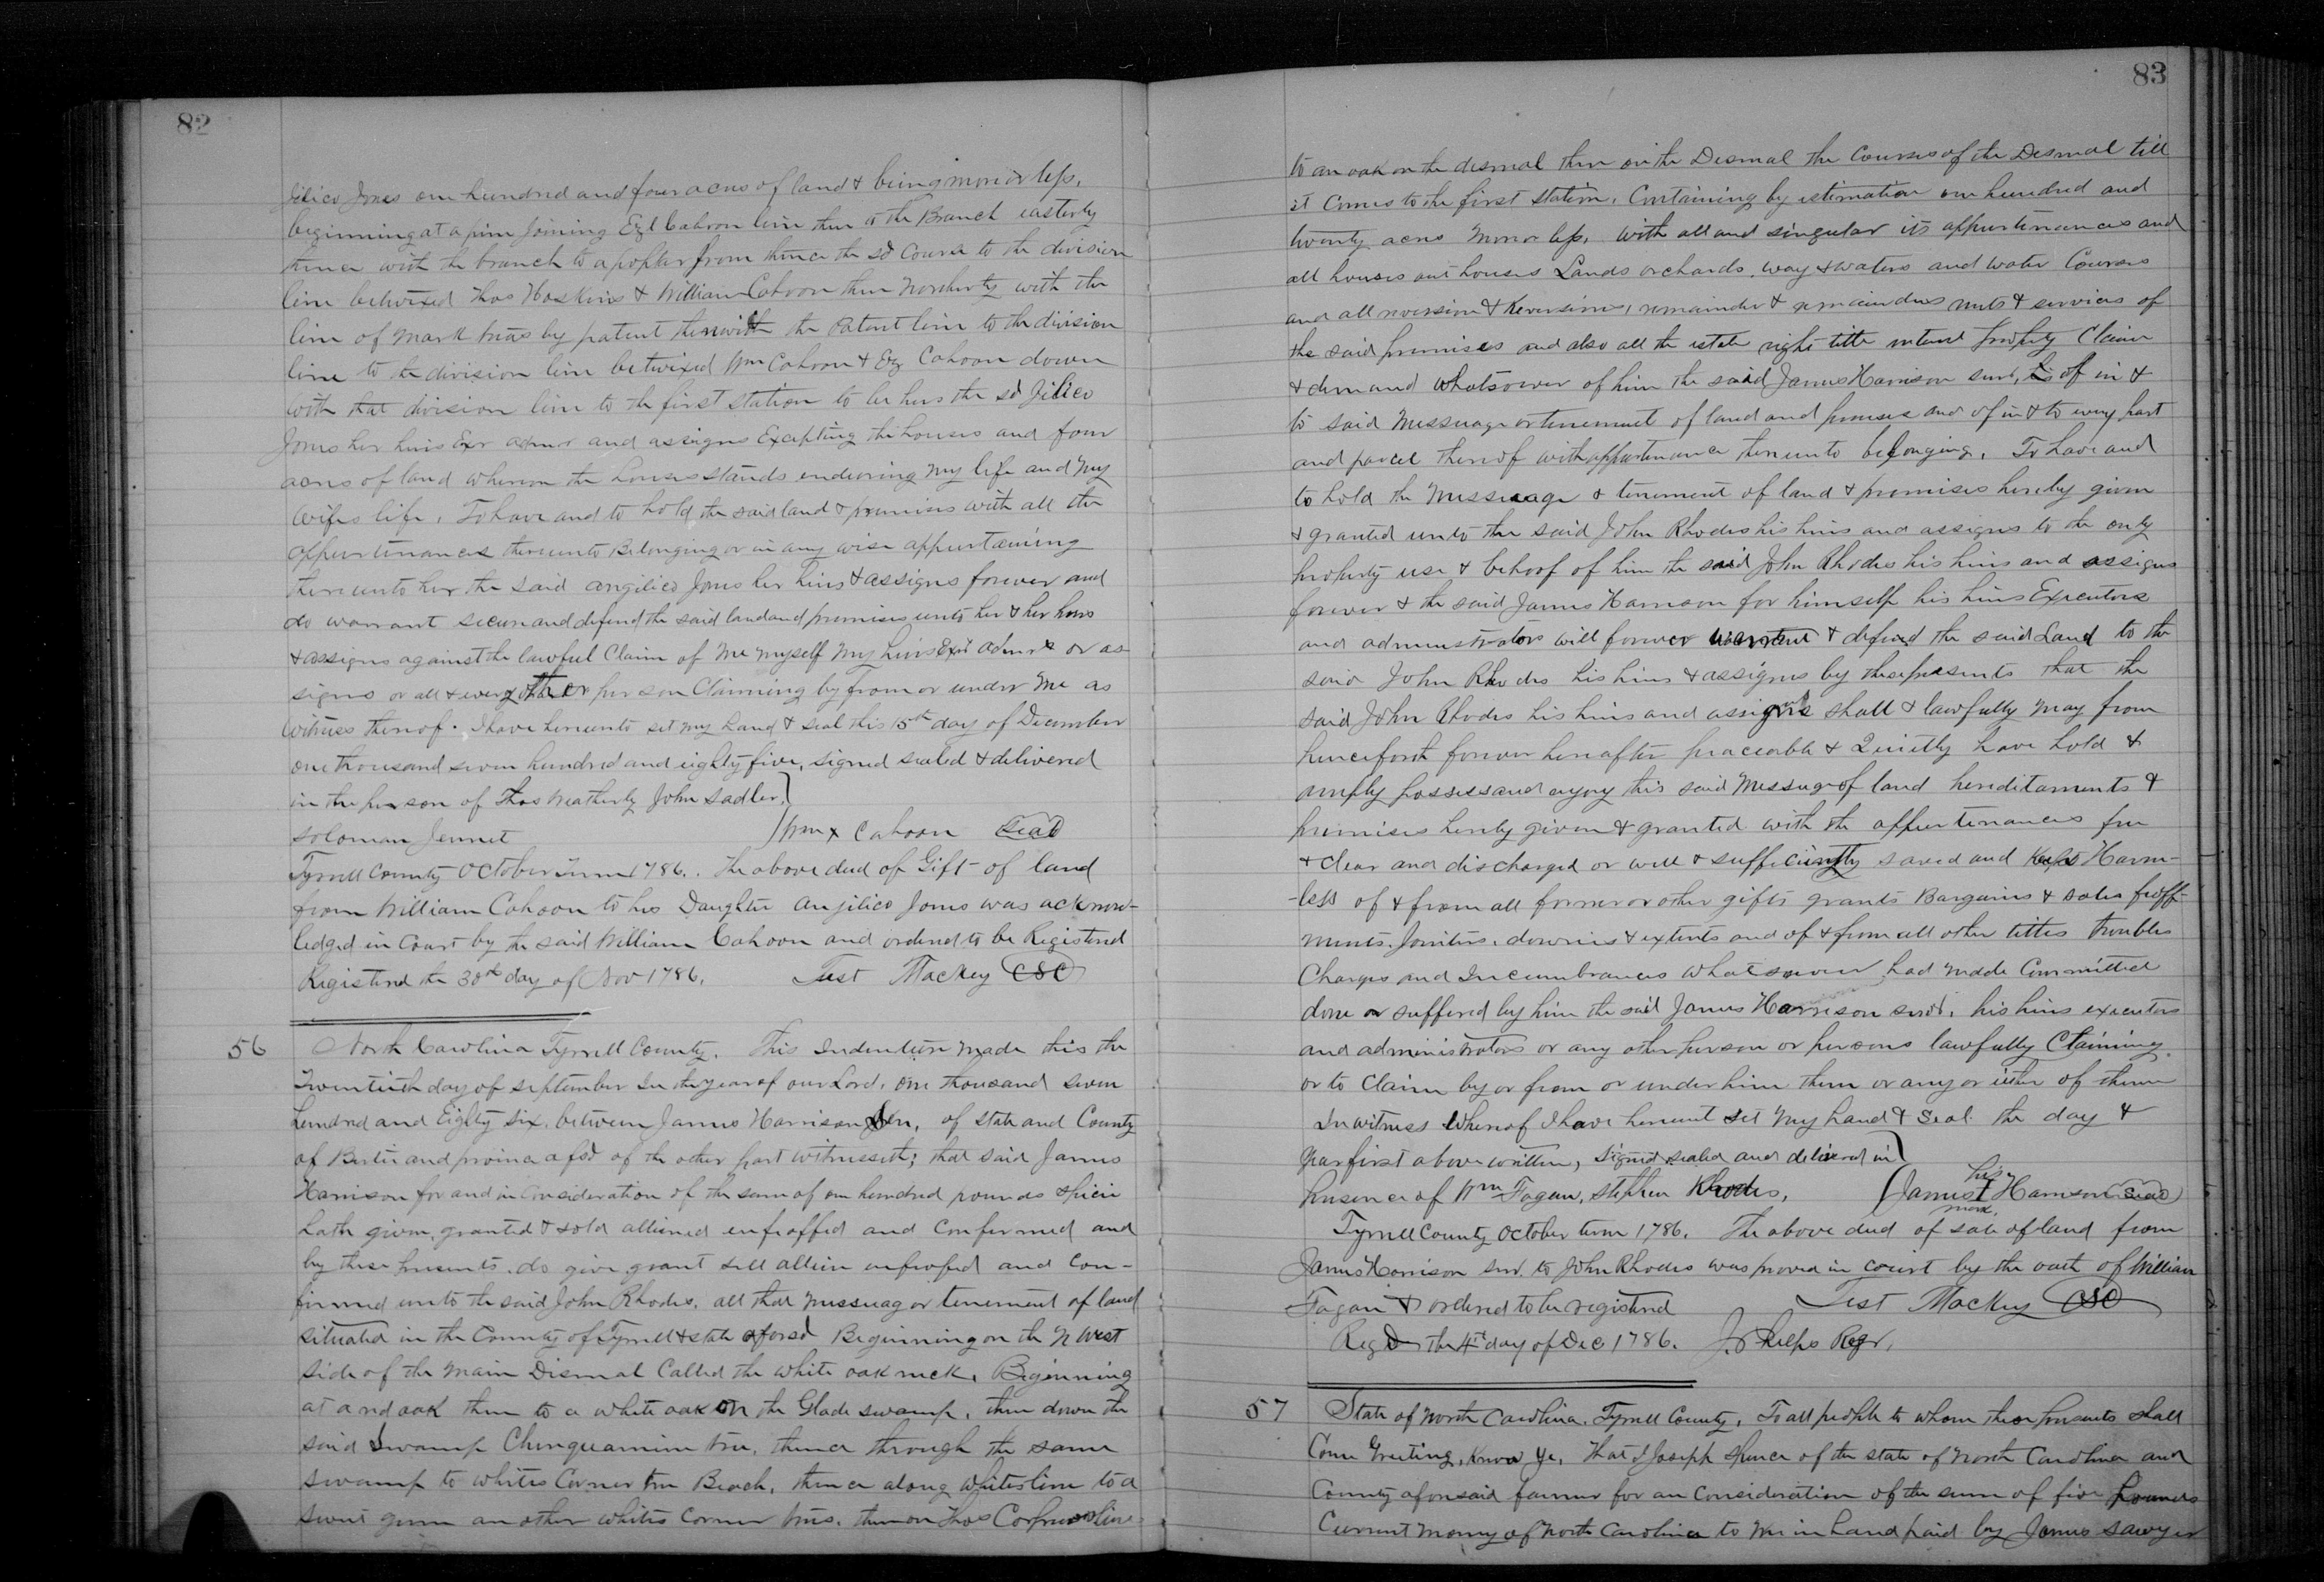 82
jilico Jones one hundred and four acres of land & being more or less,
beginning at a pine Joining Ezl Cahoon line then to the Branch easterly
thence with the branch to a poplar from thence the sd Course to the division
line betwixed Thos Hoskins & William Cahoon then Northerly with the
line of mark trees by patent then with the Patent line to the division
line to the division line betwixed Wm Cahoon & Ez Cahoon down
with that division line to the first station to be hers the sd Jilico
Jones her heirs Exr admr and assigns Excepting the houses and four
acres of land whereon the houses stands enduring my life and my
wifes life, To have and to hold the said land & premises with all the
appurtenances thereunto Belonging or in any wise appurtaining
thereunto her the said angilico Jones her heirs & assigns forever and
do warrant secure and defend the said land and premises unto her & her heirs
& assigns against the lawful Claim of me myself my heirs Exr admrs or as-
signs or all & every other person Claiming by from or under me as
witness thereof. I have hereunto set my hand & seal this 15th day of December
one thousand seven hundred and eighty five, signed sealed & delivered
in the person of Thos Weatherly John Sadler
Soloman Jennet Wm x Cahoon Seal
Tyrrell County October Term 1786. The above deed of Gift of land
from William Cahoon to his Daughter Anjilico Jones was acknow-
ledged in Court by the said William Cahoon and ordered to be Registered
Registered the 30th day of Nov 1786. Test Mackey CSC
56 North Carolina Tyrrell County. This Indenture made this the
Twentieth day of September In the year of our Lord, one thousand seven
hundred and Eighty six, between James Harrison Sen, of state and County
of Bertie and provinc afsd of the other part witnesseth; that said James
Harrison for and in Consideration of the sum of one hundred pounds specie
hath given, granted & sold aliened enfeoffed and Confirmed and
by these presents do give grant sell alien and Con-
firmed unto the said John Rhodes, all that messuag or tenement of land
situated in the County of Tyrrell & state aforsd Beginning on the N West
side of the main Dismal Called the white oak neck, Beginning
at a red oak then to a white oak on the Glade swamp, then down the
said Swamp Chinquamin tree, thence through the same
swamp to whites Corner tree Beach, thence along whites line to a
sweet gum an other whites Corner trees, then on Thos line
83
to an oak on the dismal then on the Desmal the Courses of the Desmal till
it Comes to the first station, Containing by estimation one hundred and
twenty acres more or less, with all and singular its appurtenances and
all houses out houses Lands orchards, way & waters and water Courses
and all reversion & Reversions, remainder & remainders rents & services of
the said premises and also all the estate right title interest property Claim
& demand whatsoever of him the said James Harrison senr, his of in &
to said messuage or tenement of land and premises and of in & to every part
and parcel thereof with appurtenance thereunto belonging, To have and
to hold the messuage & tenement of land & premises hereby given
& granted unto the said John Rhodes his heirs and assigns to the only
property use & behoof of him the said John Rhodes his heirs and assigns
forever & the said James Harrison for himself his heirs Executors
and administrators will forever warrant & defend the said Land to the
said John Rhodes his heirs & assigns by these presents that the
said John Rhodes his heirs and assigns shall & lawfully may from
henceforth forever hereafter peaceable & Quietly have hold &
amply possess and enjoy this said messuage of land hereditaments &
premises hereby given & granted with the appurtenances free
& clear and discharged or well & sufficiently saved and Kept Harm-
-less of & from all former or other gifts grants Bargains & sales feoff-
ments, Jointurs, dowries & extents and of & from all other titles troubles
Charges and Incumbrances whatsoever had made Committed
done or suffered by him the said James Harrison senr, his heirs executors
and administrators or any other person or persons lawfully Claiming
or to Claim by or from or under him them or any or either of them
In witness whereof I have hereunt set my hand & seal the day &
year first above written, signed sealed and delivered in
presence of Wm Fagan, Stephen Rhodes, James his mark Harrison Seal
Tyrrell County October term 1786. The above deed of sale of land from
James Harrison senr. to John Rhodes was proved in court by the oath of William
Fagan & ordered to be registered Test Mackey CSC
Regd the 4th day of Dec 1786. J. Phelps Regr.
57 State of North Carolina, Tyrrell County, To all people to whom these presents shall
Come Greeting, Know Ye, That I Joseph Spence of the state of North Carolina and
County aforesaid farmer for an Consideration of the sum of five pounds
Current money of North Carolina to me in hand paid by James Sawyer